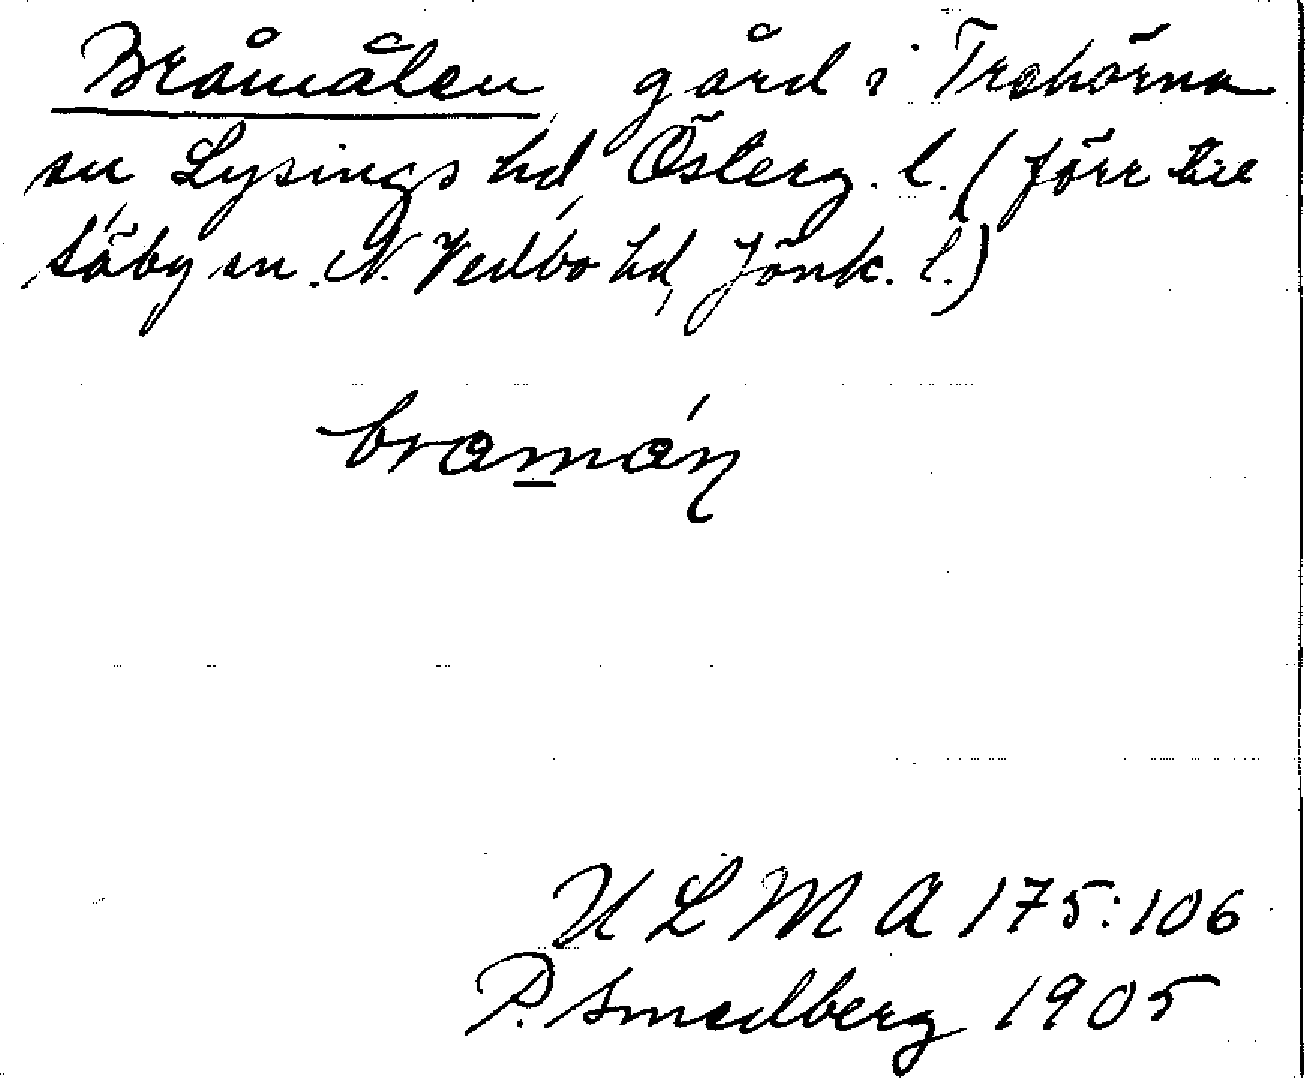 Bråmålen gård i Trehörna
sn Lysings hd, Österg. l. (förr till
Säby sn. N. Vedbo hd, Jönk. l.)
bramáɳ
U L M A 175:106
P. Smedberg 1905